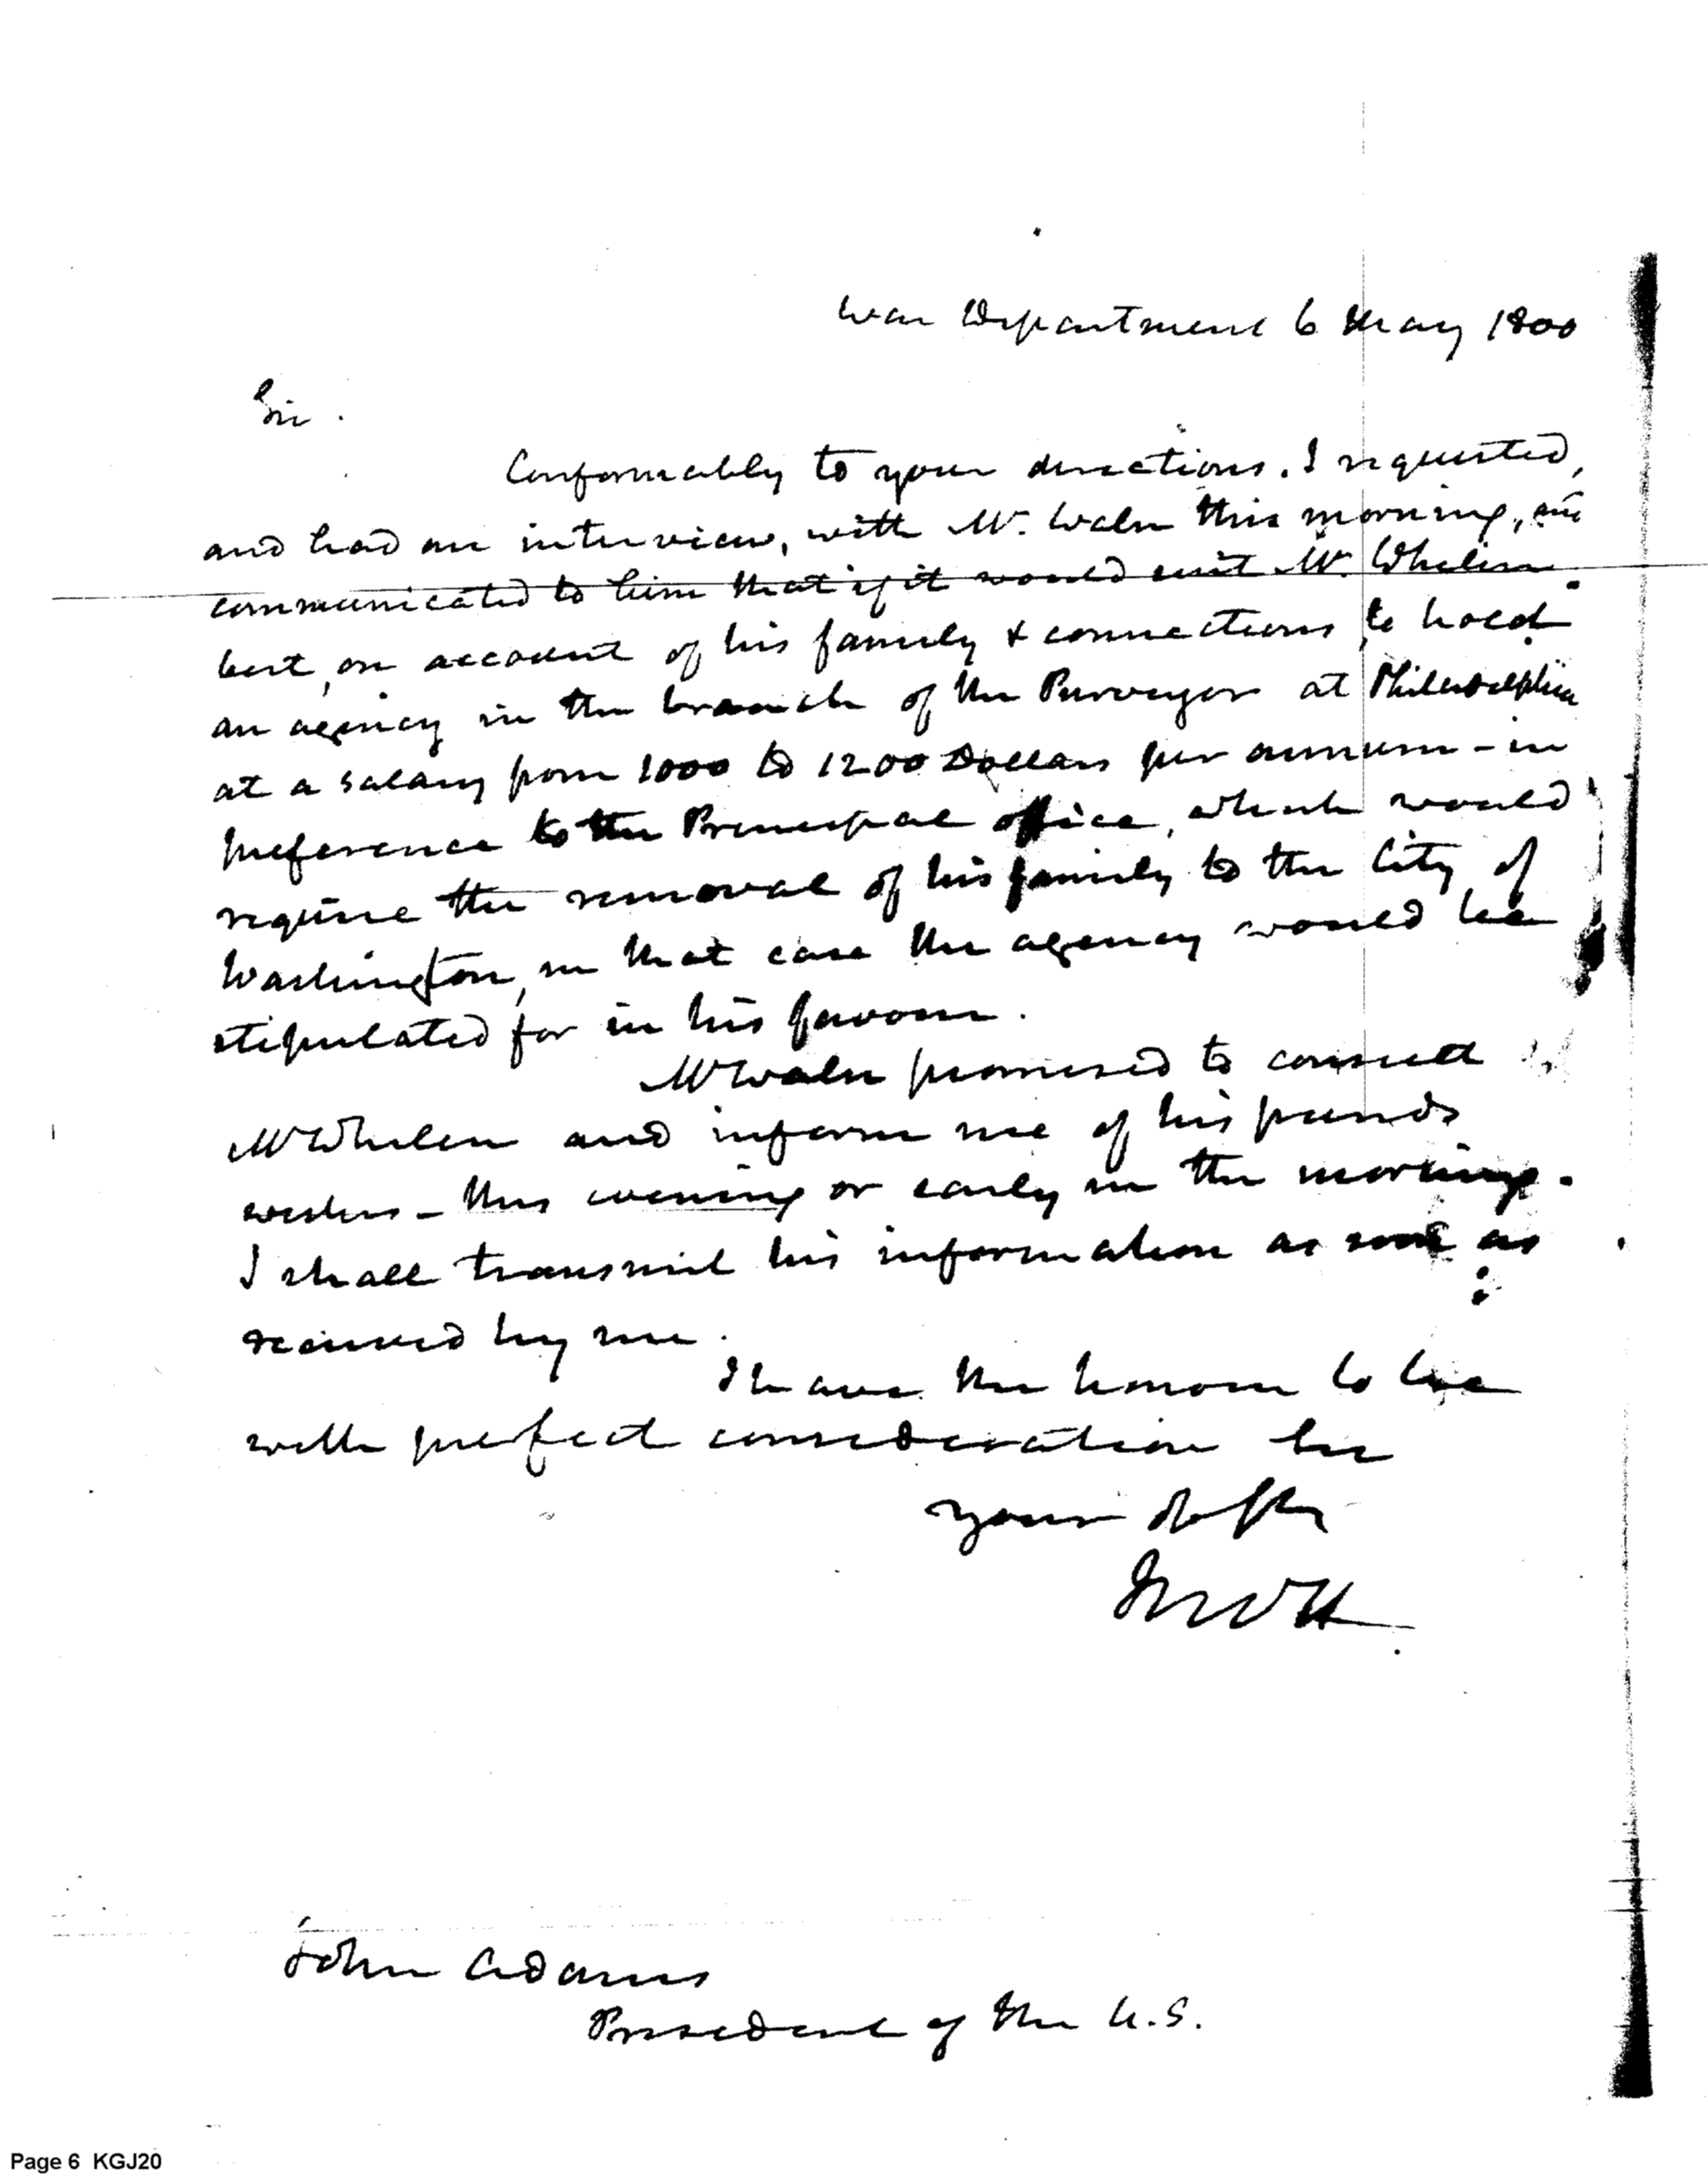 War Department 6 May 1800
Sir.
Conformably to your directions. I requested,
and had an interview, with Mr. Waln this morning, and
communicated to him that if it would suit Mr. Whelen
best, on account of his family & connections to hold
an agency in the branch of the Purveyor at Philadelphia
at a salary from 1000 to 1200 Dollars per annum - in
preference to the Principal office, which would
require the removal of his family to the City of
Washington, in that case the agency would be
stipulated for in his favour.
Mr Waln promised to consult
Mr Whelen and inform me of his
wishes - this evening or early in the morning.
I shall transmit his information as soon as
received by me.
I have the honour to be
with perfect consideration
your
John Adams
President of the U.S.
Page 6 KGJ20